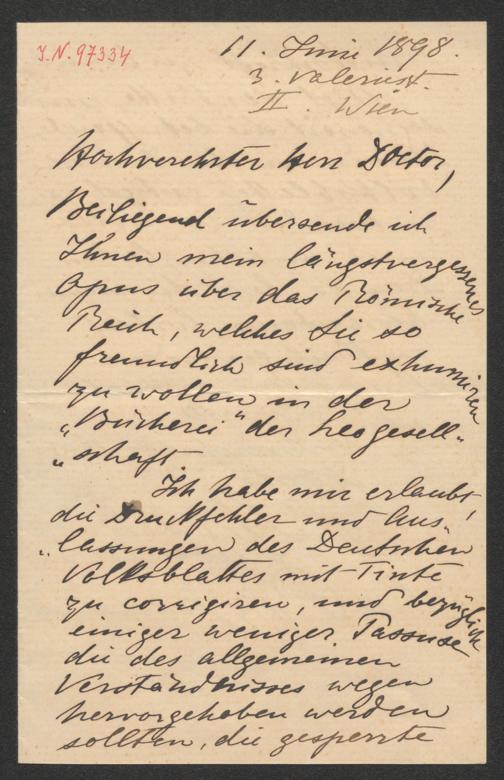 I.N. 97334
11. Juni 1898.
3. Valeriest.
II. Wien
Hochverehrter Herr Doctor,
Beiliegend übersende ich
Ihnen mein längstvergessenes
Opus über das Römische
Reich, welches Sie so
freundlich sind exhumiren
zu wollen in der
"Bücherei" der Leogesell-
"schaft
Ich habe mir erlaubt,
die Druckfehler und Aus-
"lassungen des Deutschen
Volksblattes mit Tinte
zu corrigiren, und bezüglich
einiger weniger Passuse
die des allgemeinen
Verständnisses wegen
hervorgehoben werden
sollten, die gesperrte